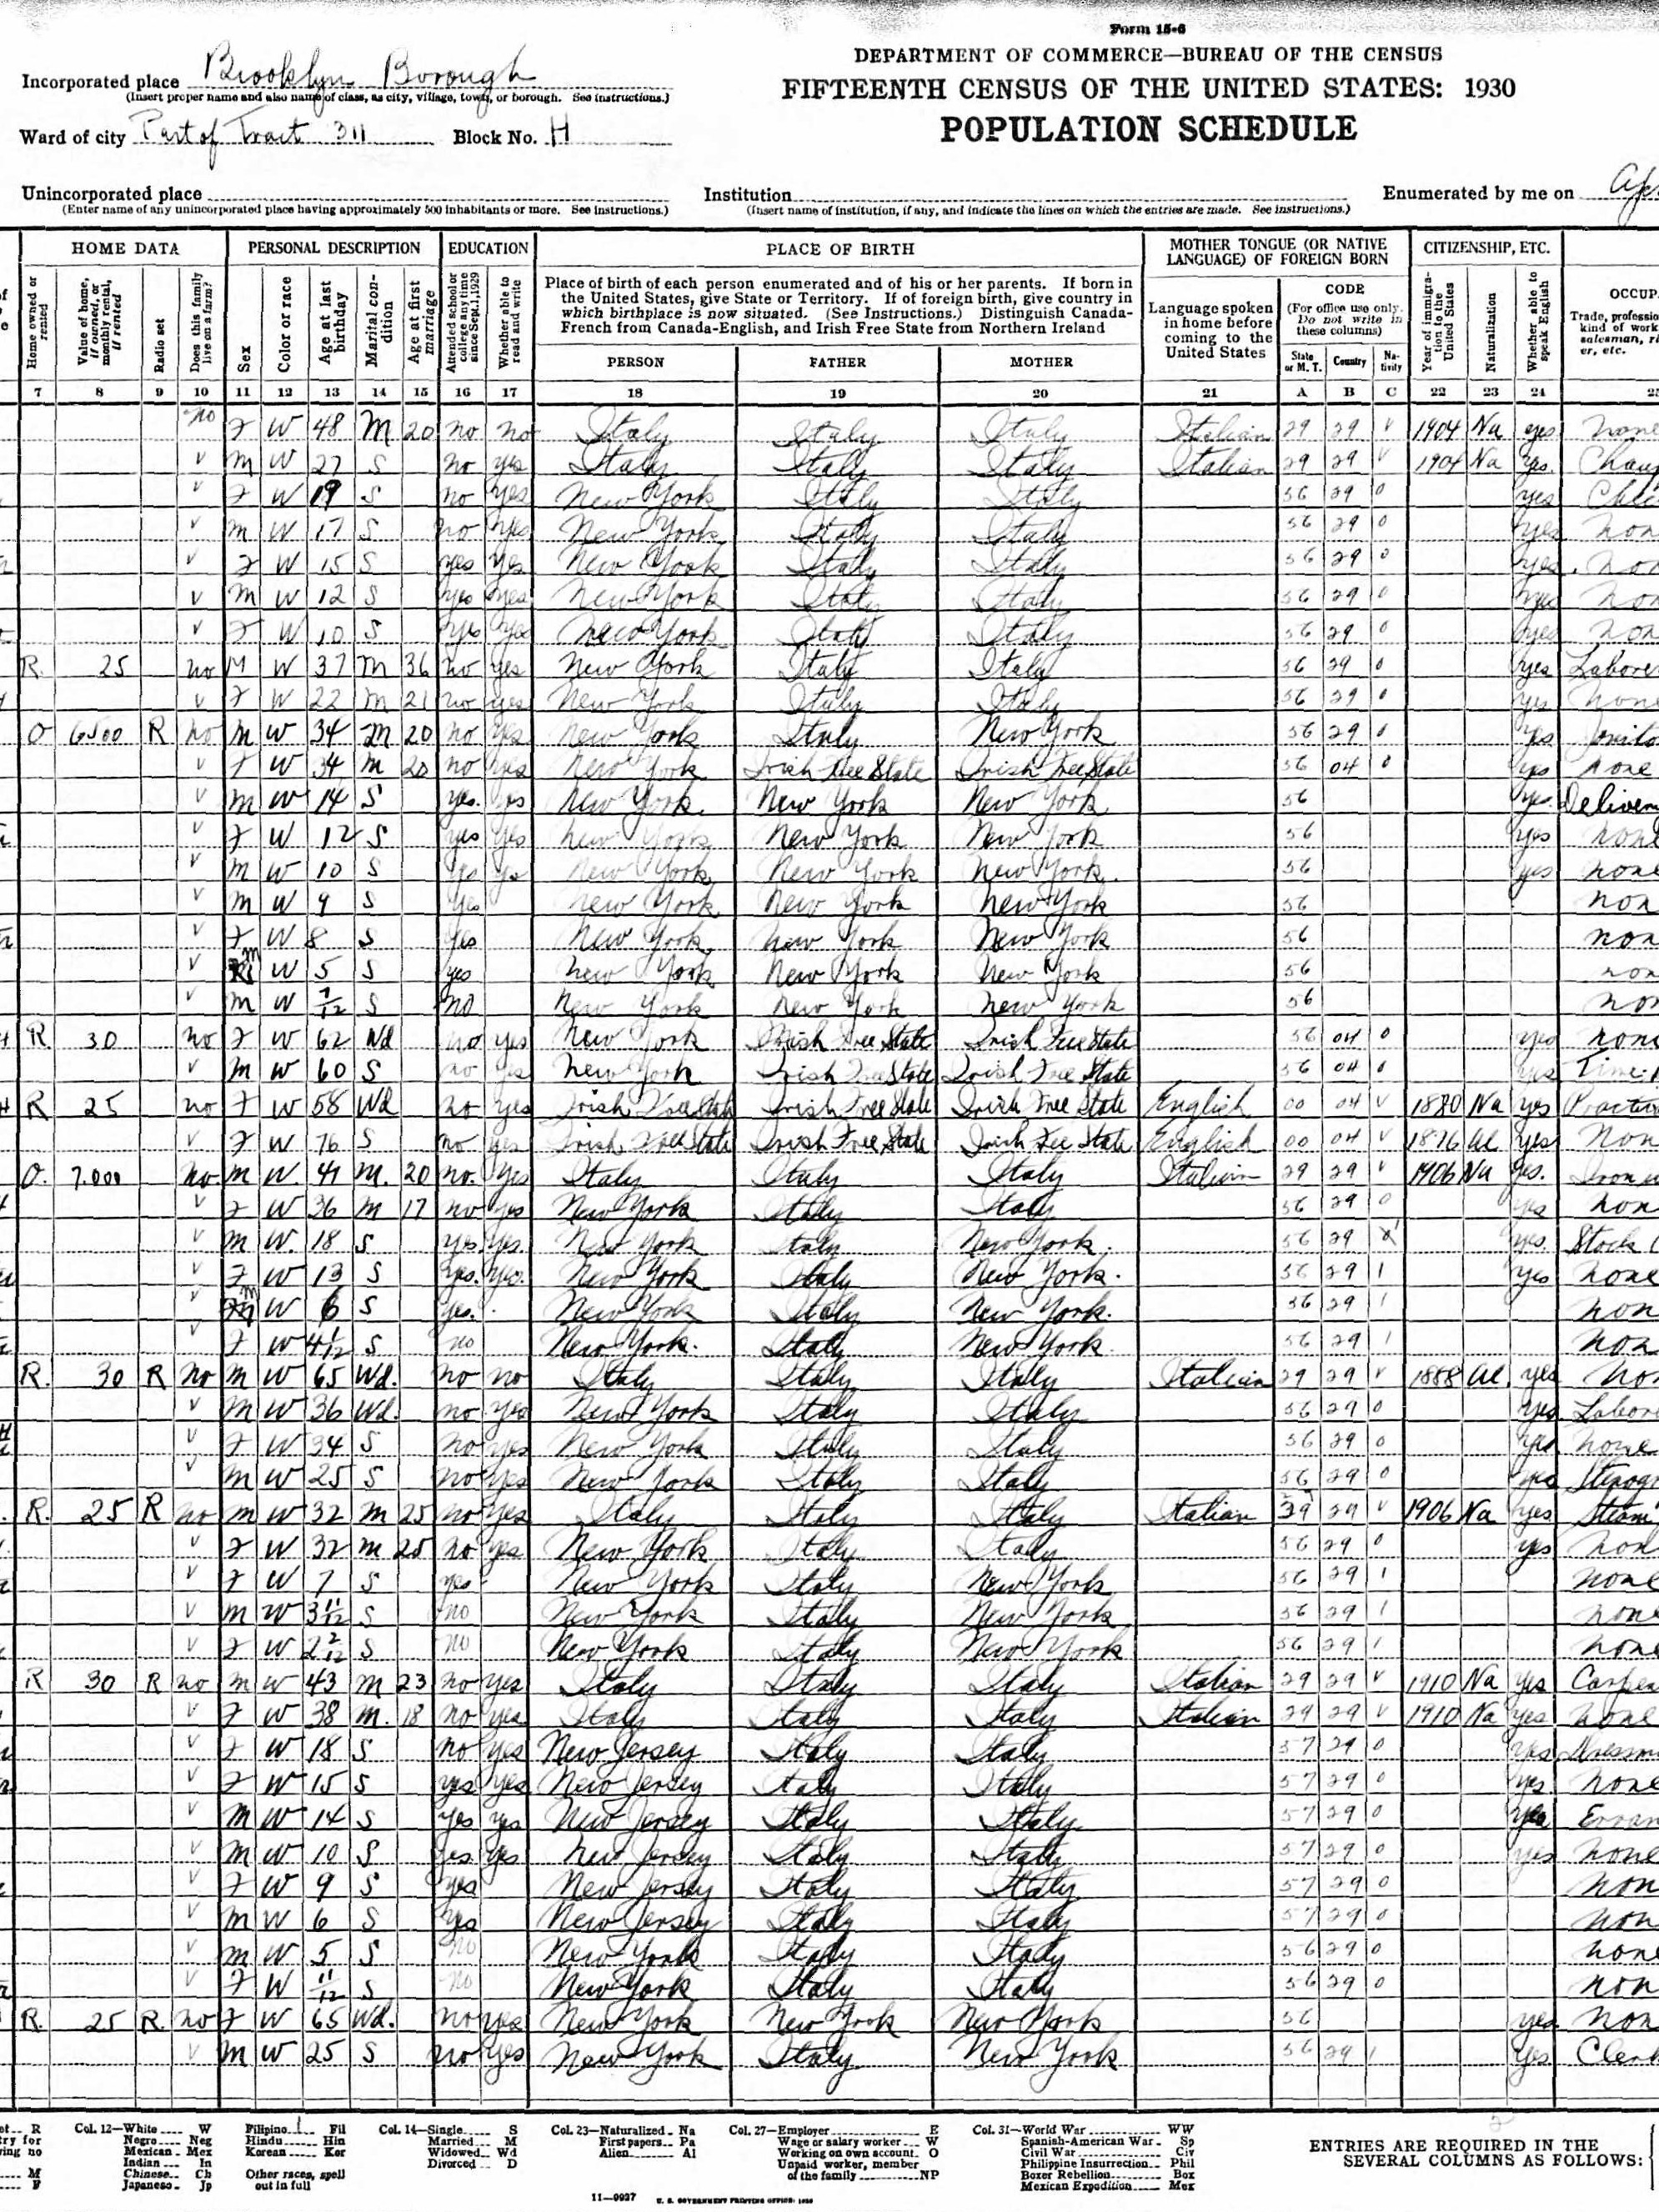 Form 15-6
DEPARTMENT OF COMMERCE—BUREAU OF THE CENSUS
FIFTEENTH CENSUS OF THE UNITED STATES: 1930
POPULATION SCHEDULE
Incorporated place Brooklyn Borough
(Insert proper name and also name of class, as city, village, town, or borough. See instructions.)
Ward of city Part of Tract 311 Block No. H
Unincorporated place
(Enter name of any unincorporated place having approximately 500 inhabitants or more. See instructions.)
Institution
(Insert name of institution, if any, and indicate the lines on which the entries are made. See instructions.)
Enumerated by me on
HOME DATA PERSONAL DESCRIPTION EDUCATION PLACE OF BIRTH MOTHER TONGUE (OR NATIVE LANGUAGE) OF FOREIGN BORN CITIZENSHIP, ETC.
Home owned or rented
Value of home, if owned, or monthly rental, if rented
Radio set
Does this family live on a farm?
Sex
Color or race
Age at last birthday
Marital condition
Age at first marriage
Attended school or college any time since Sept. 1, 1929
Whether able to read and write
Place of birth of each person enumerated and of his or her parents. If born in
the United States, give State or Territory. If of foreign birth, give country in
which birthplace is now situated. (See Instructions.) Distinguish Canada-
French from Canada-English, and Irish Free State from Northern Ireland
PERSON FATHER MOTHER
Language spoken in home before coming to the United States
CODE
(For office use only. Do not write in these columns)
State or M. T. Country Nativity
Year of immigration to the United States
Naturalization
Whether able to speak English
7 8 9 10 11 12 13 14 15 16 17 18 19 20 21 A B C 22 23 24
no F W 48 M 20 no no Italy Italy Italy Italian 29 29 V 1904 Na yes none
V M W 27 S no yes Italy Italy Italy Italian 29 29 V 1904 Na yes.
V F W 19 S no yes New York Italy Italy 56 29 0 yes
V M W 17 S no yes New York Italy Italy 56 29 0 yes
V F W 15 S yes yes New York Italy Italy 56 29 0 yes
V M W 12 S yes yes New York Italy Italy 56 29 0 yes
V F W 10 S yes yes New York Italy Italy 56 29 0 yes
R. 25 no M W 37 M 36 no yes New York Italy Italy 56 29 0 yes Labore
V F W 22 M 21 no yes New York Italy Italy 56 29 0 yes none
O 6500 R no M W 34 M 20 no yes New York Italy New York 56 29 0 yes
V F W 34 M 20 no yes New York Irish Free State Irish Free State 56 04 0 yes none
V M W 14 S yes. yes New York New York New York 56 yes. Deliver
V F W 12 S yes yes New York New York New York 56 yes none
V M W 10 S yes yes New York New York New York. 56 yes none
V M W 9 S yes New York New York New York 56 non
V F W 8 S yes New York New York New York 56 non
V M W 5 S yes New York New York New York 56 non
V M W 7/12 S no New York New York New York 56 non
R. 30 no F W 62 Wd no yes New York Irish Free State Irish Free State 56 04 0 yes none
V M W 60 S no yes New York Irish Free State Irish Free State 56 04 0 yes
R 25 no F W 58 Wd no yes Irish Free State Irish Free State Irish Free State English 00 04 V 1880 Na yes
V F W 76 S no yes Irish Free State Irish Free State Irish Free State English 00 04 V 1876 Al yes non
O. 7.000 no M W. 41 M. 20 no. yes Italy Italy Italy Italian 29 29 V 1906 Na yes.
V F W 36 M 17 no yes New York Italy Italy 56 29 0 yes non
V M W. 18 S yes yes. New York Italy New York. 56 29 1 yes. Stock
V F W 13 S yes. yes. New York Italy New York. 56 29 1 yes none
V M W 6 S yes. New York Italy New York. 56 29 1 non
V F W 4 1/12 S no New York. Italy New York. 56 29 1 non
R. 30 R no M W 65 Wd. no no Italy Italy Italy Italian 29 29 V 1888 Al. yes non
V M W 36 Wd. no yes New York Italy Italy 56 29 0 yes Labore
V F W 34 S no yes New York Italy Italy 56 29 0 yes none
V M W 25 S no yes New York Italy Italy 56 29 0 yes Stenogr
R. 25 R no M W 32 M 25 no yes Italy Italy Italy Italian 29 29 V 1906 Na yes Steam
V F W 32 M 25 no yes New York Italy Italy 56 29 0 yes non
V F W 7 S yes New York Italy New York 56 29 1 none
V M W 3 11/12 S no New York Italy New York 56 29 1 none
V F W 2 2/12 S no New York Italy New York 56 29 1 none
R 30 R no M W 43 M 23 no yes Italy Italy Italy Italian 29 29 V 1910 Na yes Carpen
V F W 38 M. 18 no yes Italy Italy Italy Italian 29 29 V 1910 Na yes none
V F W 18 S no yes New Jersey Italy Italy 57 29 0 yes Dressm
V F W 15 S yes yes New Jersey Italy Italy 57 29 0 yes none
V M W 14 S yes yes New Jersey Italy Italy 57 29 0 yes Erran
V M W 10 S yes yes New Jersey Italy Italy 57 29 0 yes none
V F W 9 S yes New Jersey Italy Italy 57 29 0 non
V M W 6 S yes New Jersey Italy Italy 57 29 0 non
V M W 5 S no New York Italy Italy 56 29 0 none
V F W 11/12 S no New York Italy Italy 56 29 0 non
R. 25 R. no F W 65 Wd. no yes New York New York New York 56 yes non
V M W 25 S no yes New York Italy New York 56 29 1 yes Clerk
Col. 12—White W Negro Neg Mexican Mex Indian In Chinese Ch Japanese Jp
Filipino Fil Hindu Hin Korean Kor Other races, spell out in full
Col. 14—Single S Married M Widowed Wd Divorced D
Col. 23—Naturalized Na First papers Pa Alien Al
Col. 27—Employer E Wage or salary worker W Working on own account O Unpaid worker, member of the family NP
Col. 31—World War WW Spanish-American War Sp Civil War Civ Philippine Insurrection Phil Boxer Rebellion Box Mexican Expedition Mex
ENTRIES ARE REQUIRED IN THE
SEVERAL COLUMNS AS FOLLOWS:
11—9927 U. S. GOVERNMENT PRINTING OFFICE: 1930